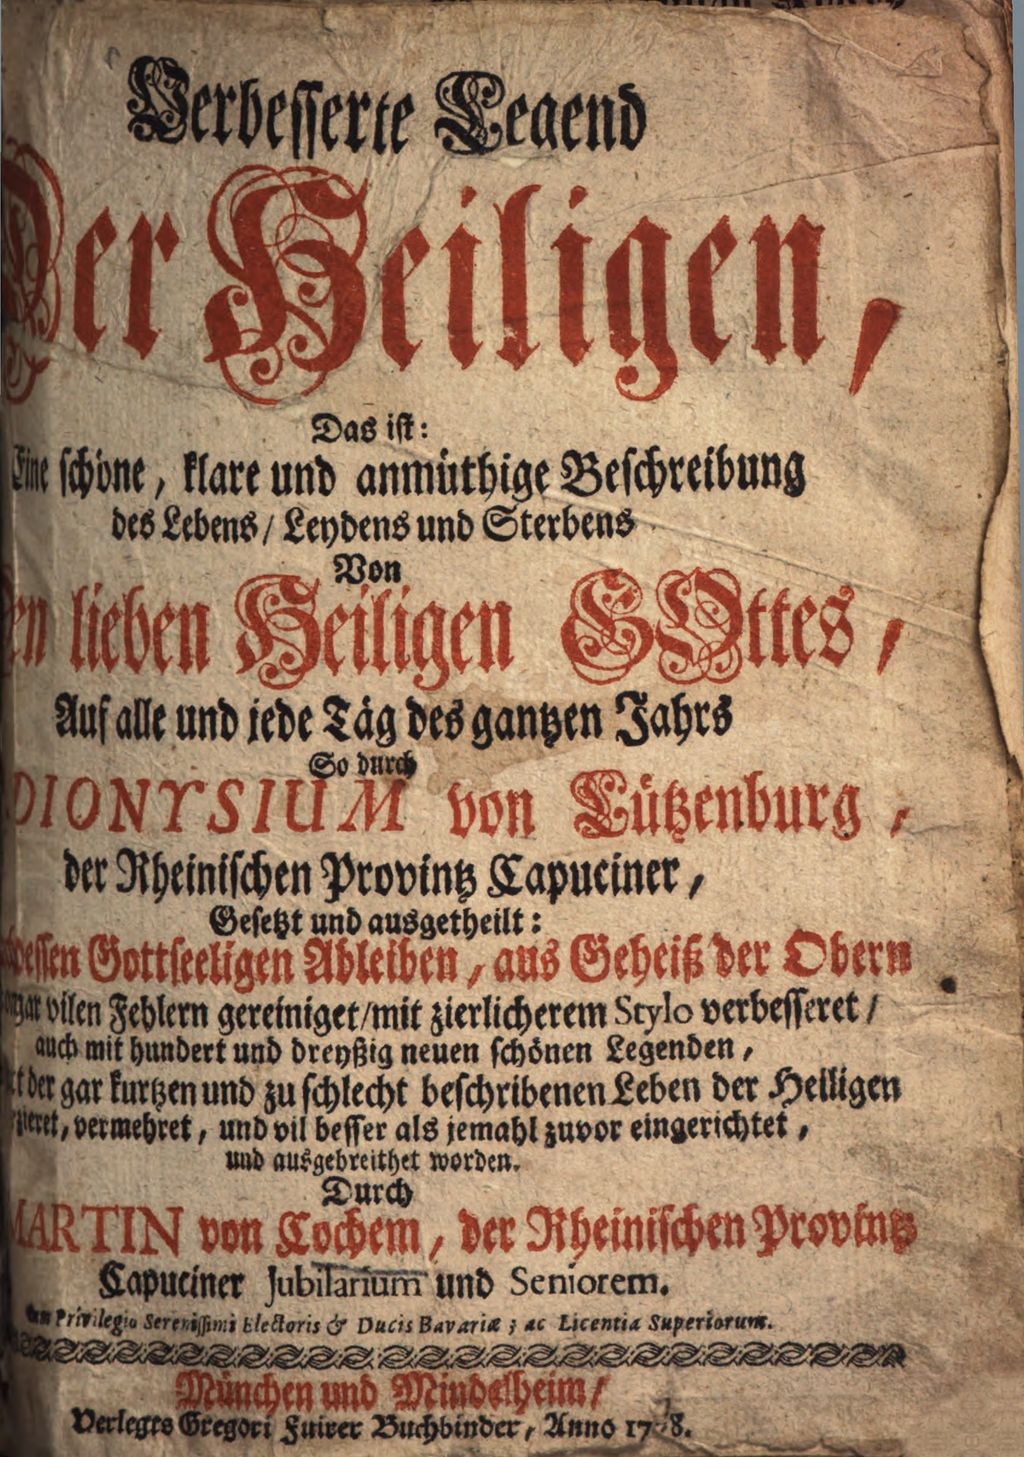 Verbesserte Legend
Der Heiligen,
Das ist:
Eine schöne, klare und anmüthige Beschreibung
des Lebens/ Leydens und Sterbens
Von
den lieben Heiligen GOttes,
Auf alle und jede Täg des gantzen Jahrs
So durch
DIONYSIUM von Lützenburg,
der Rheinischen Provintz Capuciner,
Gesetzt und ausgetheilt:
dessen Gottseeligen Ableiben, aus Geheiß der Obern
gar vilen Fehlern gereiniget/mit zierlicherem Stylo verbesseret/
auch mit hundert und dreyßig neuen schönen Legenden,
der gar kurtzen und zu schlecht beschribenen Leben der Heiligen
vermehret, und vil besser als jemahl zuvor eingerichtet,
und ausgebreithet worden.
Durch
MARTIN von Cochem, der Rheinischen Provintz
Capuciner Jubilarium und Seniorem.
Privilegio Serenissimi Electoris & Ducis Bavariæ; ac Licentia Superiorum.
München und Mindelheim/
Verlegts Gregori Fuirer Buchbinder, Anno